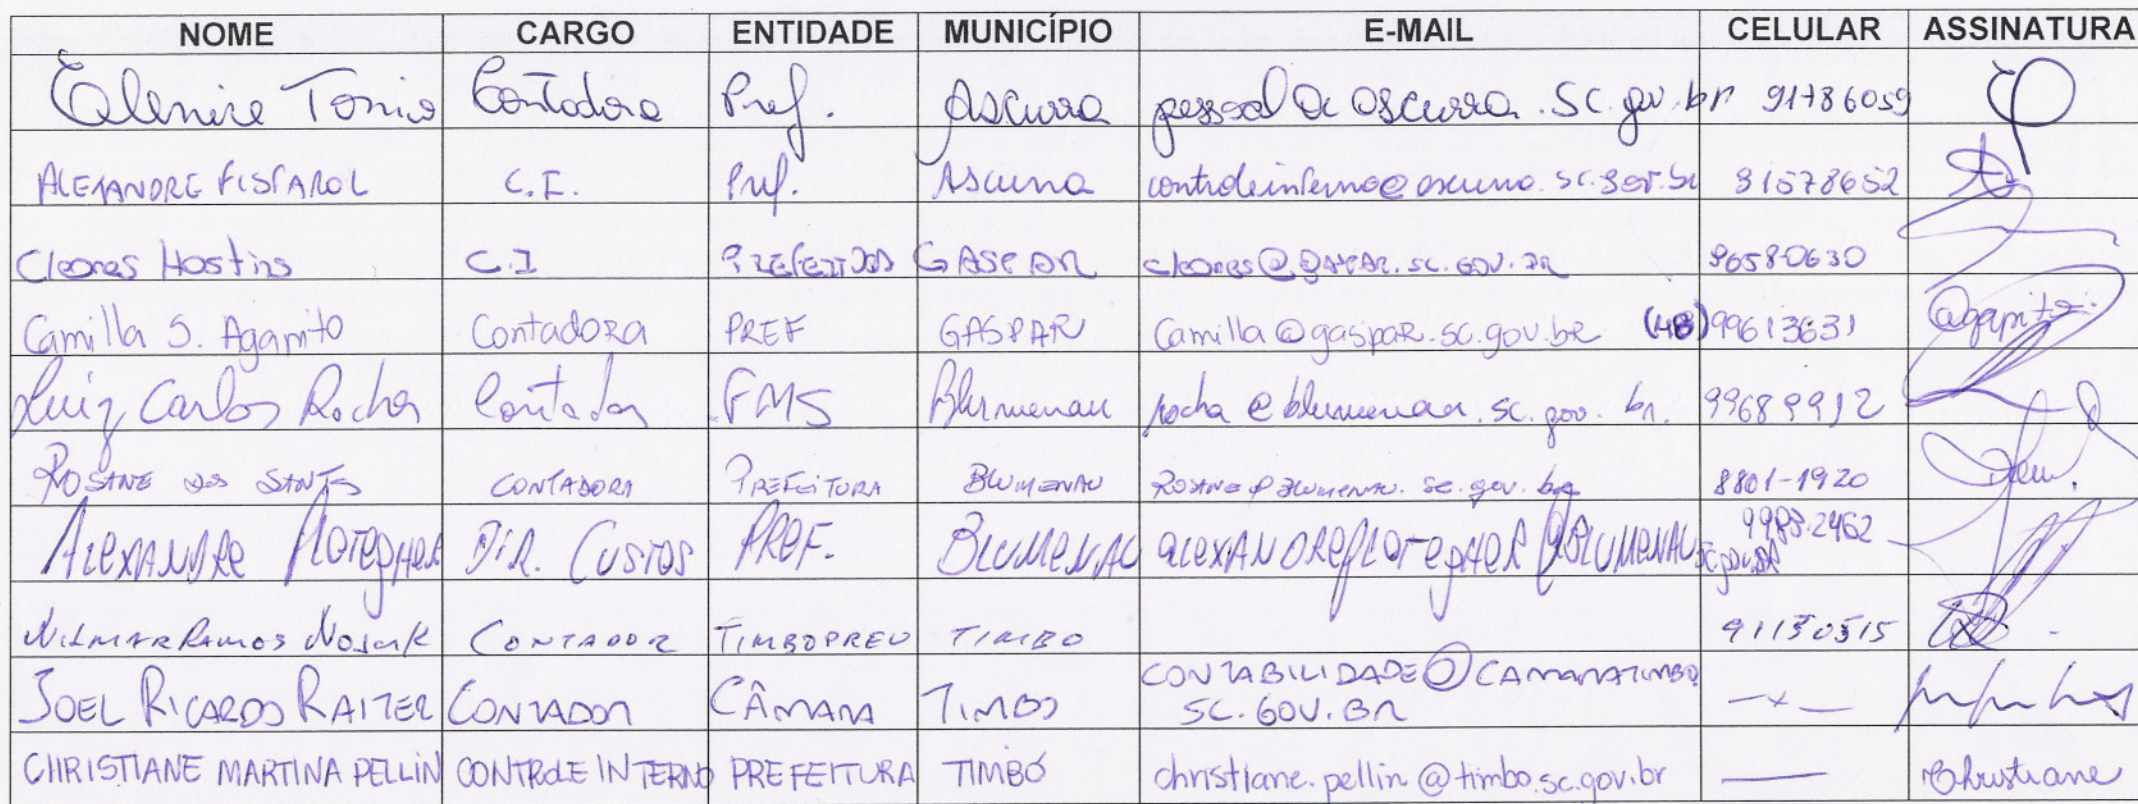 NOME CARGO ENTIDADE MUNICÍPIO E-MAIL CELULAR ASSINATURA
Tonio Contadora Pref. Ascurra pessoal@ascurra.sc.gov.br 91786059
ALEXANDRE FISTAROL C.I. Pref. Ascurra controleinterno@ascurra.sc.gov.br 91578652
Cleones Hostins C.I PREFEITURA GASPAR cleones@GASPAR.SC.GOV.BR 96580630
Camilla S. Agapito Contadora PREF GASPAR Camilla@gaspar.sc.gov.br (48)99613631 Agapito
Luiz Carlos Rocha Contador FMS Blumenau rocha@blumenau.sc.gov.br. 99689912
ROSANE dos SANTOS CONTADORA PREFEITURA BLUMENAU ROSANE@BLUMENAU.sc.gov.br 8801-1920
ALEXANDRE DIR. CUSTOS PREF. BLUMENAU 9983-2462
NILMAR RAMOS CONTADOR TIMBOPREV TIMBO 91130515
JOEL RICARDO RAITER CONTADOR CÂMARA TIMBO CONTABILIDADE@CAMARATIMBO. —x—
SC.GOV.BR
CHRISTIANE MARTINA PELLIN CONTROLE INTERNO PREFEITURA TIMBÓ christiane.pellin@timbo.sc.gov.br — Christiane